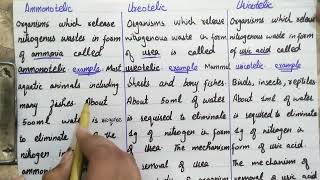 Ammonotelic
Organisms which release
nitogenous wastes in form
of ammonia called
ammonotelic example. Most
aquatic animals including
many fishes. About
50ml water is require
to eliminate of
nitrogen in
ammonia
Ureotelic
Organisms which release
nitrogenous waste in form
of urea is called
ureotelic example Mammal
Sharks and bony fishes.
About 50ml of water
is required to eliminate
1g of nitrogen in form
of Urea. The mechanism
removal of Urea
Uricotelic
Organisms which release
nitrogenous waste in form
of uric acid called
uricotelic. example
Birds, insects, reptiles
About 1ml of water
is required to eliminate
1g of nitrogen in
form of Uric acid
The mechanism of
removal of uric